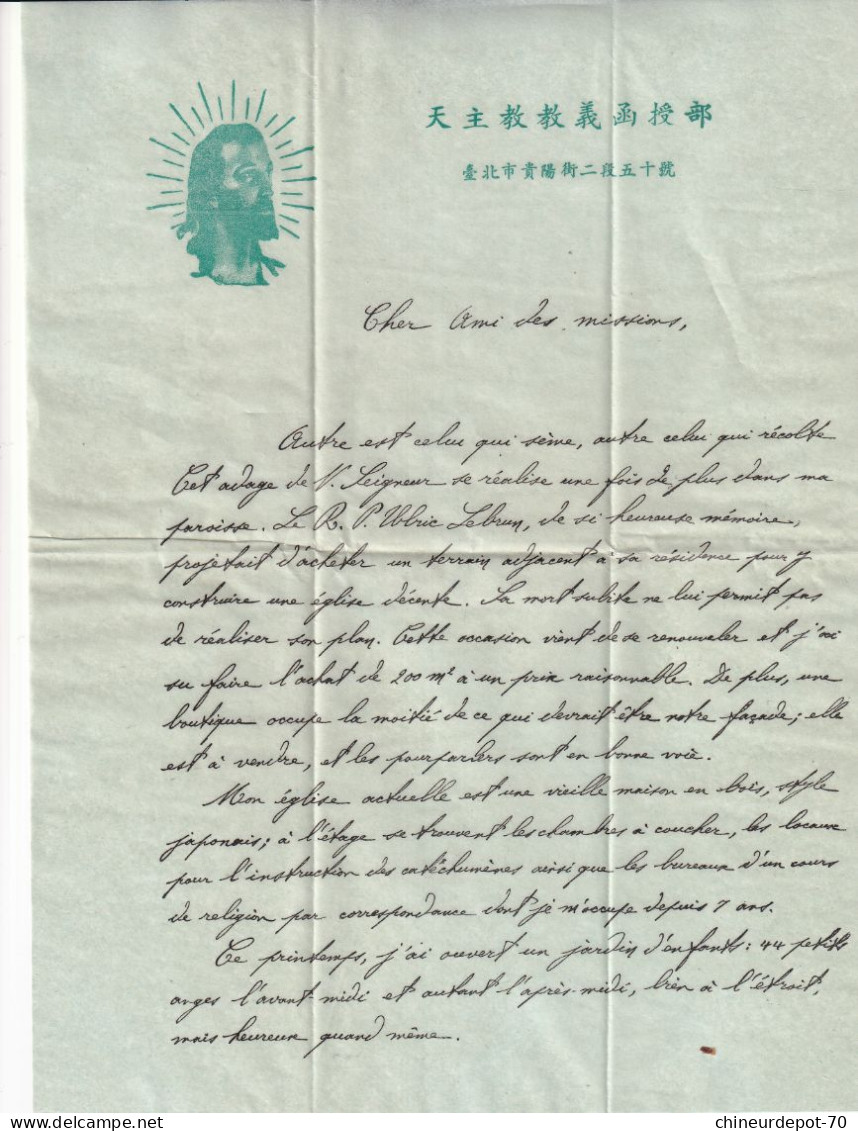 天主教教義函授部
臺北市貴陽街二段五十號
Cher Ami des missions,
Autre est celui qui sème, autre celui qui récolte
Cet adage de N. Seigneur se réalise une fois de plus dans ma
paroisse. Le R. P. Ulric Lebrun, de si heureuse mémoire,
projetait d'acheter un terrain adjacent à sa résidence pour y
construire une église décente. Sa mort subite ne lui permit pas
de réaliser son plan. Cette occasion vient de se renouveler et j'ai
su faire l'achat de 200 m² à un prix raisonnable. De plus, une
boutique occupe la moitié de ce qui devrait être notre façade; elle
est à vendre, et les pourparlers sont en bonne voie.
Mon église actuelle est une vieille maison en bois, style
japonais; à l'étage se trouvent les chambres à coucher, les locaux
pour l'instruction des catéchumènes ainsi que les bureaux d'un cours
de religion par correspondance dont je m'occupe depuis 7 ans.
Ce printemps, j'ai ouvert un jardin d'enfants: 44 petits
anges l'avant-midi et autant l'après-midi, bien à l'étroit,
mais heureux quand même.
chineurdepot-70